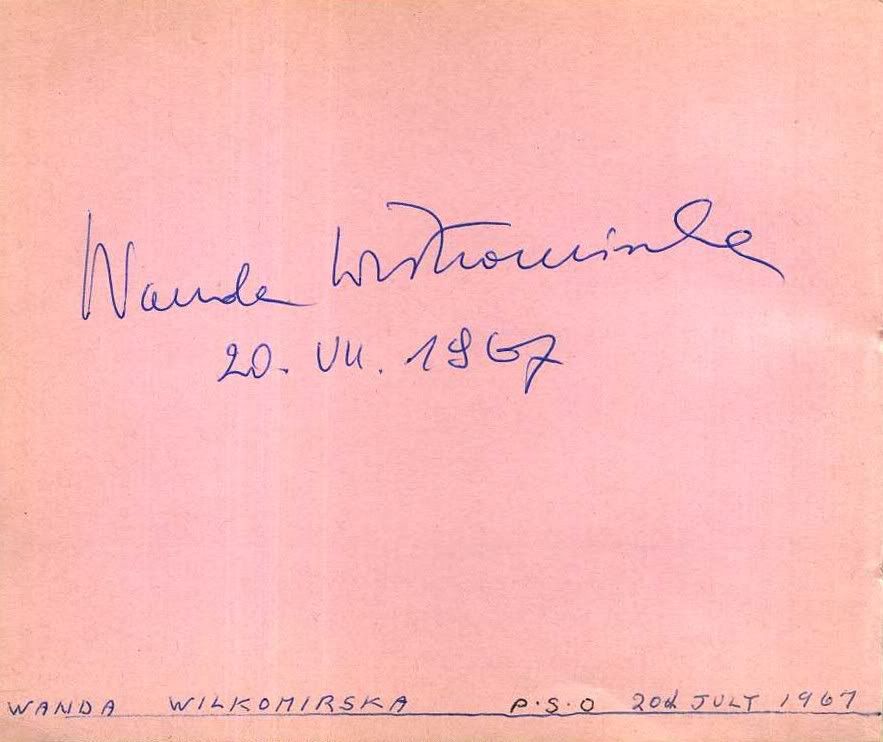 Wanda Wiłkomirska
20. VII. 1967
WANDA WILKOMIRSKA P.S.O 20th JULY 1967